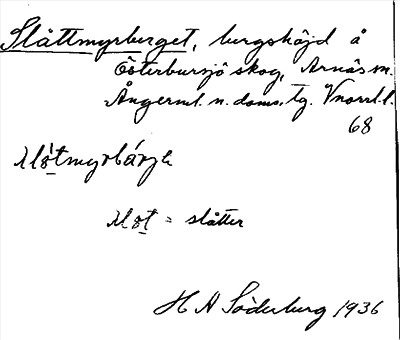 Slåttmyrberget, bergshöjd å
Österbursjö skog, Arnäs sn.
Ångerml. n. doms. tg. Vnorrl. l.
68
= slåtter
H A Söderberg 1936